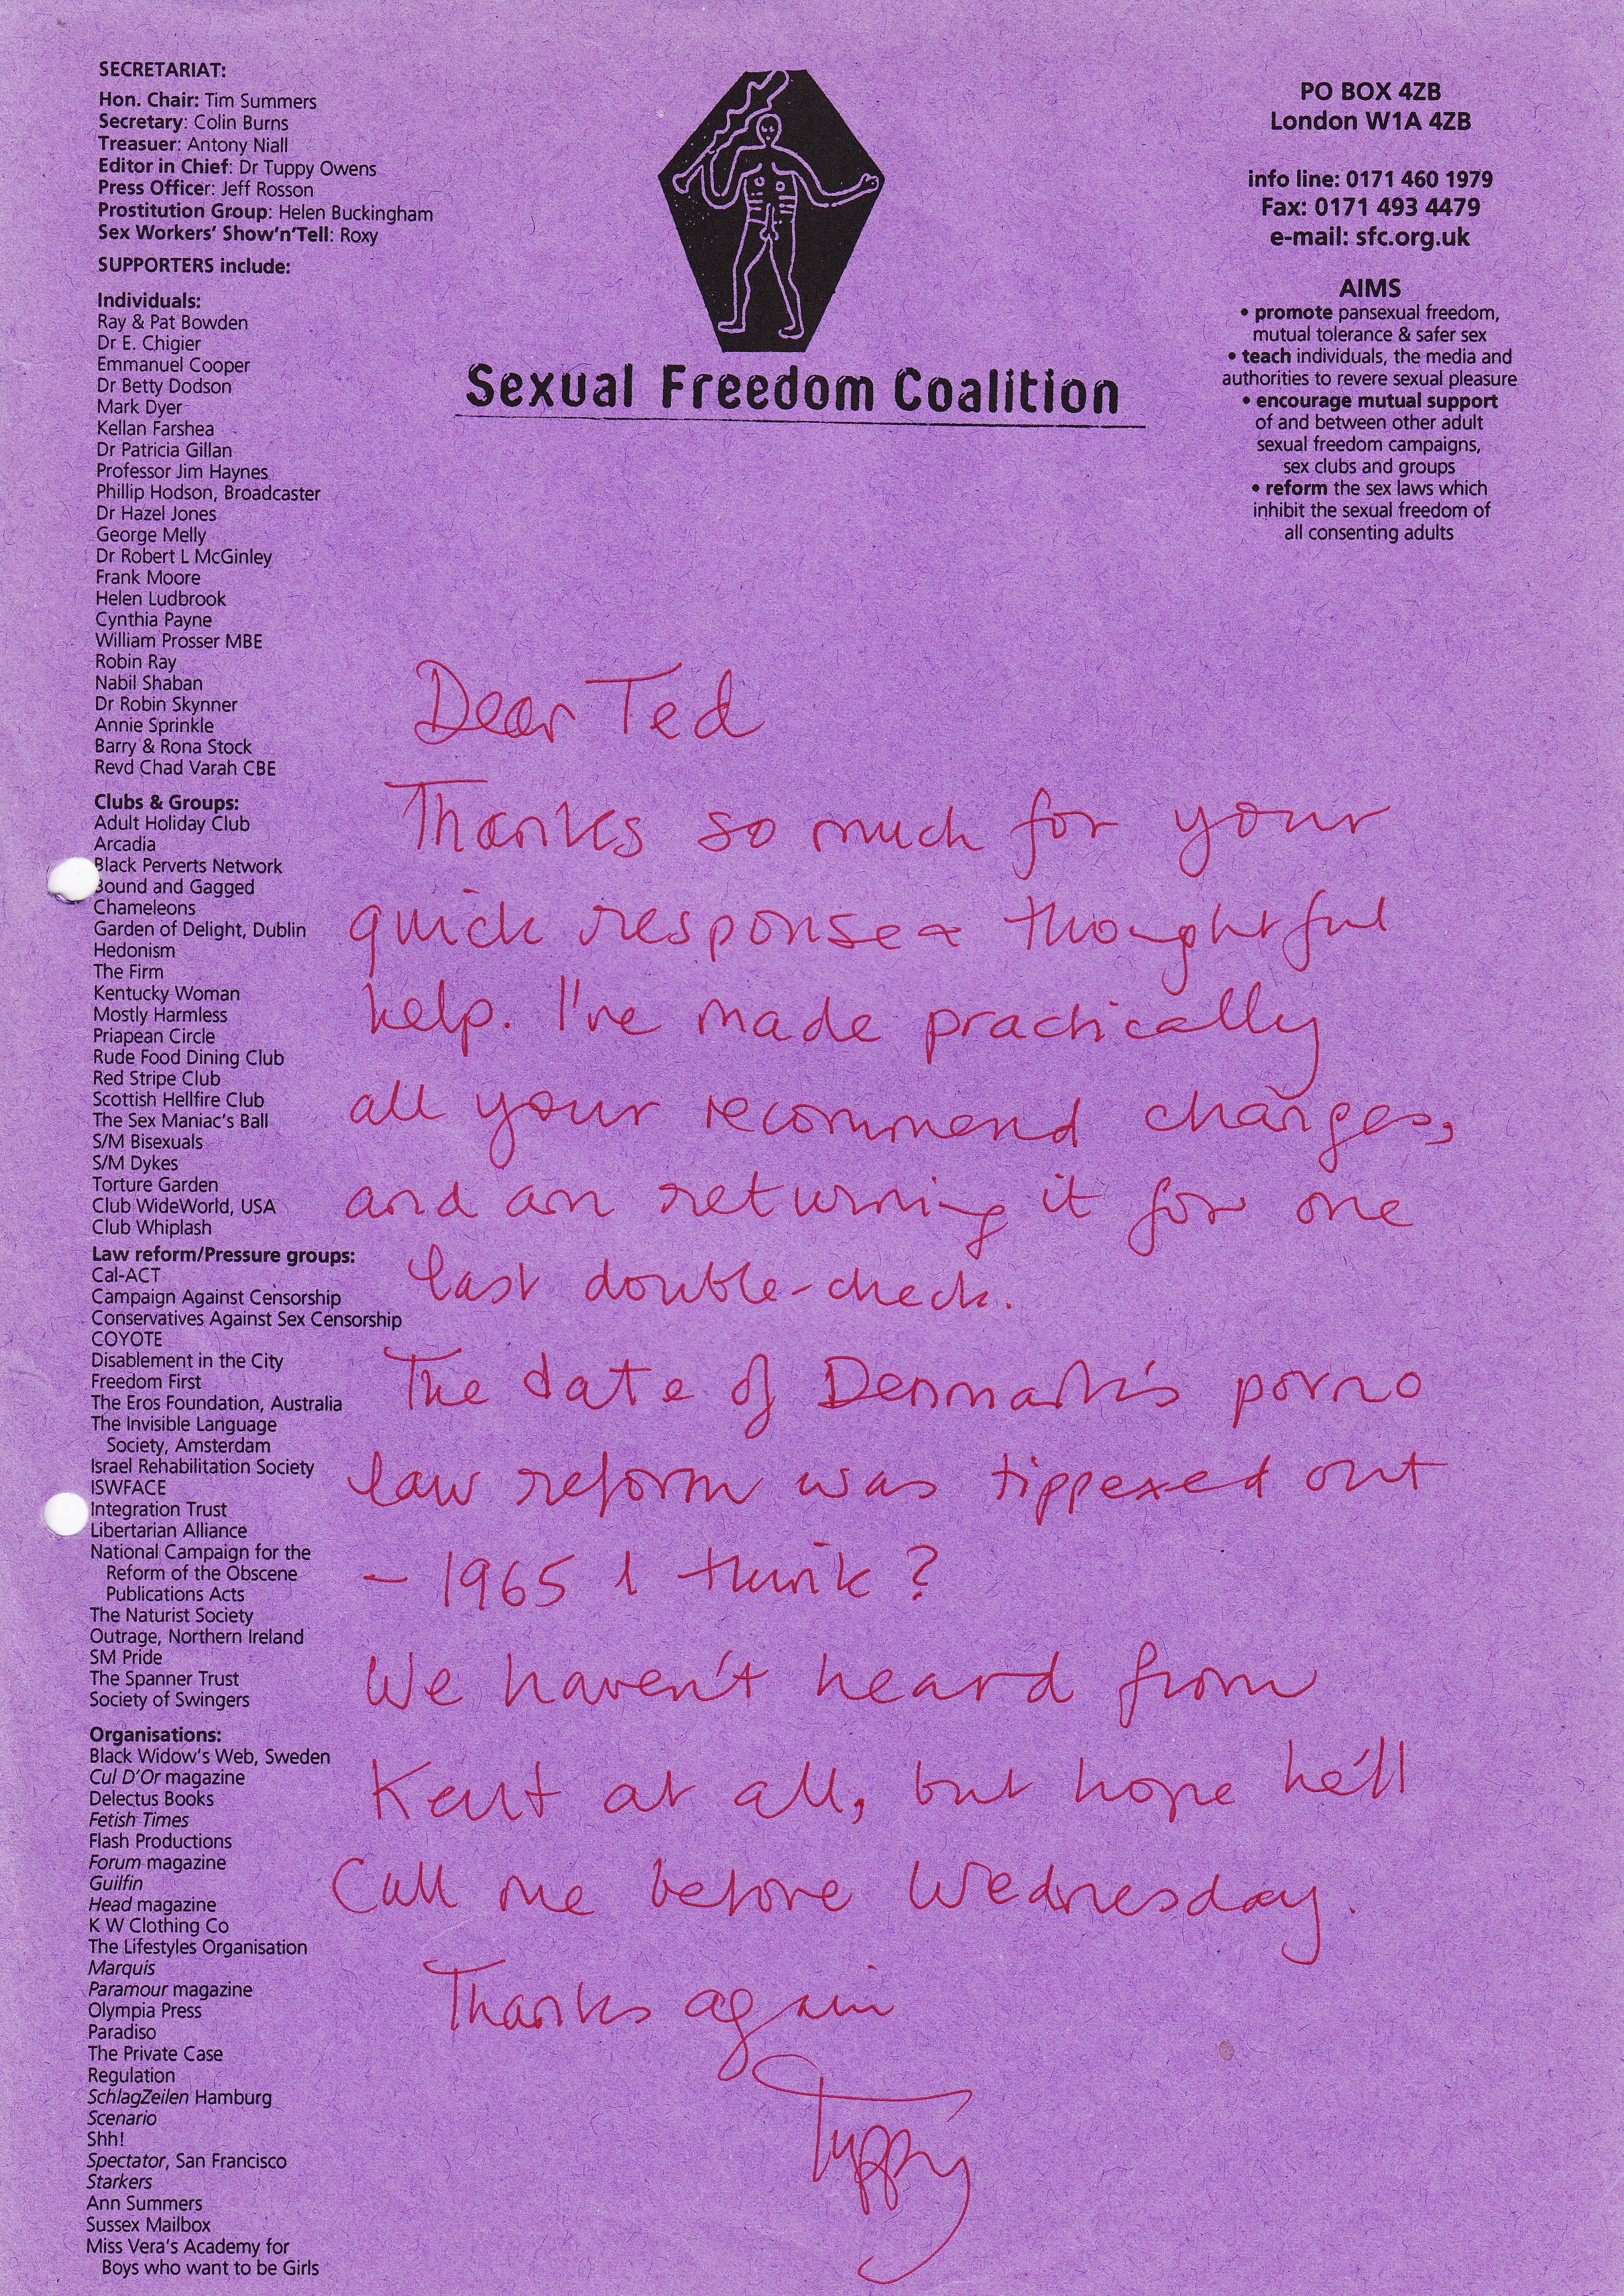 SECRETARIAT:
Hon. Chair: Tim Summers
Secretary: Colin Burns
Treasuer: Antony Niall
Editor in Chief: Dr Tuppy Owens
Press Officer: Jeff Rosson
Prostitution Group: Helen Buckingham
Sex Workers' Show'n'Tell: Roxy
SUPPORTERS include:
Individuals:
Ray & Pat Bowden
Dr E. Chigier
Emmanuel Cooper
Dr Betty Dodson
Mark Dyer
Kellan Farshea
Dr Patricia Gillan
Professor Jim Haynes
Phillip Hodson, Broadcaster
Dr Hazel Jones
George Melly
Dr Robert L McGinley
Frank Moore
Helen Ludbrook
Cynthia Payne
William Prosser MBE
Robin Ray
Nabil Shaban
Dr Robin Skynner
Annie Sprinkle
Barry & Rona Stock
Revd Chad Varah CBE
Clubs & Groups:
Adult Holiday Club
Arcadia
Black Perverts Network
Bound and Gagged
Chameleons
Garden of Delight, Dublin
Hedonism
The Firm
Kentucky Woman
Mostly Harmless
Priapean Circle
Rude Food Dining Club
Red Stripe Club
Scottish Hellfire Club
The Sex Maniac's Ball
S/M Bisexuals
S/M Dykes
Torture Garden
Club WideWorld, USA
Club Whiplash
Law reform/Pressure groups:
Cal-ACT
Campaign Against Censorship
Conservatives Against Sex Censorship
COYOTE
Disablement in the City
Freedom First
The Eros Foundation, Australia
The Invisible Language
Society, Amsterdam
Israel Rehabilitation Society
ISWFACE
Integration Trust
Libertarian Alliance
National Campaign for the
Reform of the Obscene
Publications Acts
The Naturist Society
Outrage, Northern Ireland
SM Pride
The Spanner Trust
Society of Swingers
Organisations:
Black Widow's Web, Sweden
Cul D'Or magazine
Delectus Books
Fetish Times
Flash Productions
Forum magazine
Guilfin
Head magazine
K W Clothing Co
The Lifestyles Organisation
Marquis
Paramour magazine
Olympia Press
Paradiso
The Private Case
Regulation
SchlagZeilen Hamburg
Scenario
Shh!
Spectator, San Francisco
Starkers
Ann Summers
Sussex Mailbox
Miss Vera's Academy for
Boys who want to be Girls
Sexual Freedom Coalition
PO BOX 4ZB
London W1A 4ZB
info line: 0171 460 1979
Fax: 0171 493 4479
e-mail: sfc.org.uk
AIMS
• promote pansexual freedom,
mutual tolerance & safer sex
• teach individuals, the media and
authorities to revere sexual pleasure
• encourage mutual support
of and between other adult
sexual freedom campaigns,
sex clubs and groups
• reform the sex laws which
inhibit the sexual freedom of
all consenting adults
Dear Ted
Thanks so much for your
quick response & thoughtful
help. I've made practically
all your recommend changes,
and am returning it for one
last double-check.
The date of Denmark's porno
law reform was tippexed out
- 1965 I think?
We haven't heard from
Kent at all, but hope he'll
call me before Wednesday.
Thanks again
Tuppy